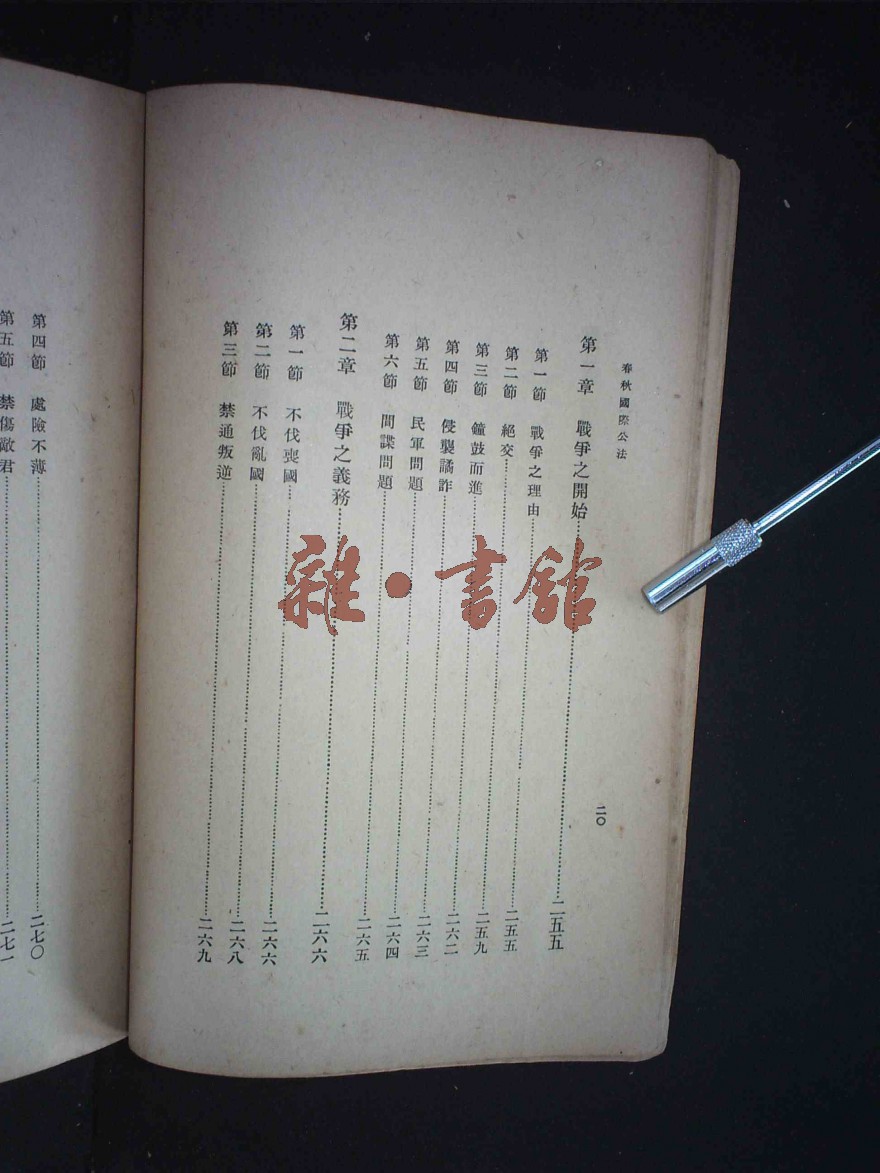 春秋國際公法
二〇
第一章 戰爭之開始……二五五
第一節 戰爭之理由……二五五
第二節 絕交……二五九
第三節 鐘鼓而進……二六二
第四節 侵襲譎詐……二六三
第五節 民軍問題……二六四
第六節 間諜問題……二六五
第二章 戰爭之義務……二六六
第一節 不伐喪國……二六六
第二節 不伐亂國……二六八
第三節 禁通叛逆……二六九
第四節 處險不薄……二七〇
第五節 禁傷敵君……二七一
雜·書館